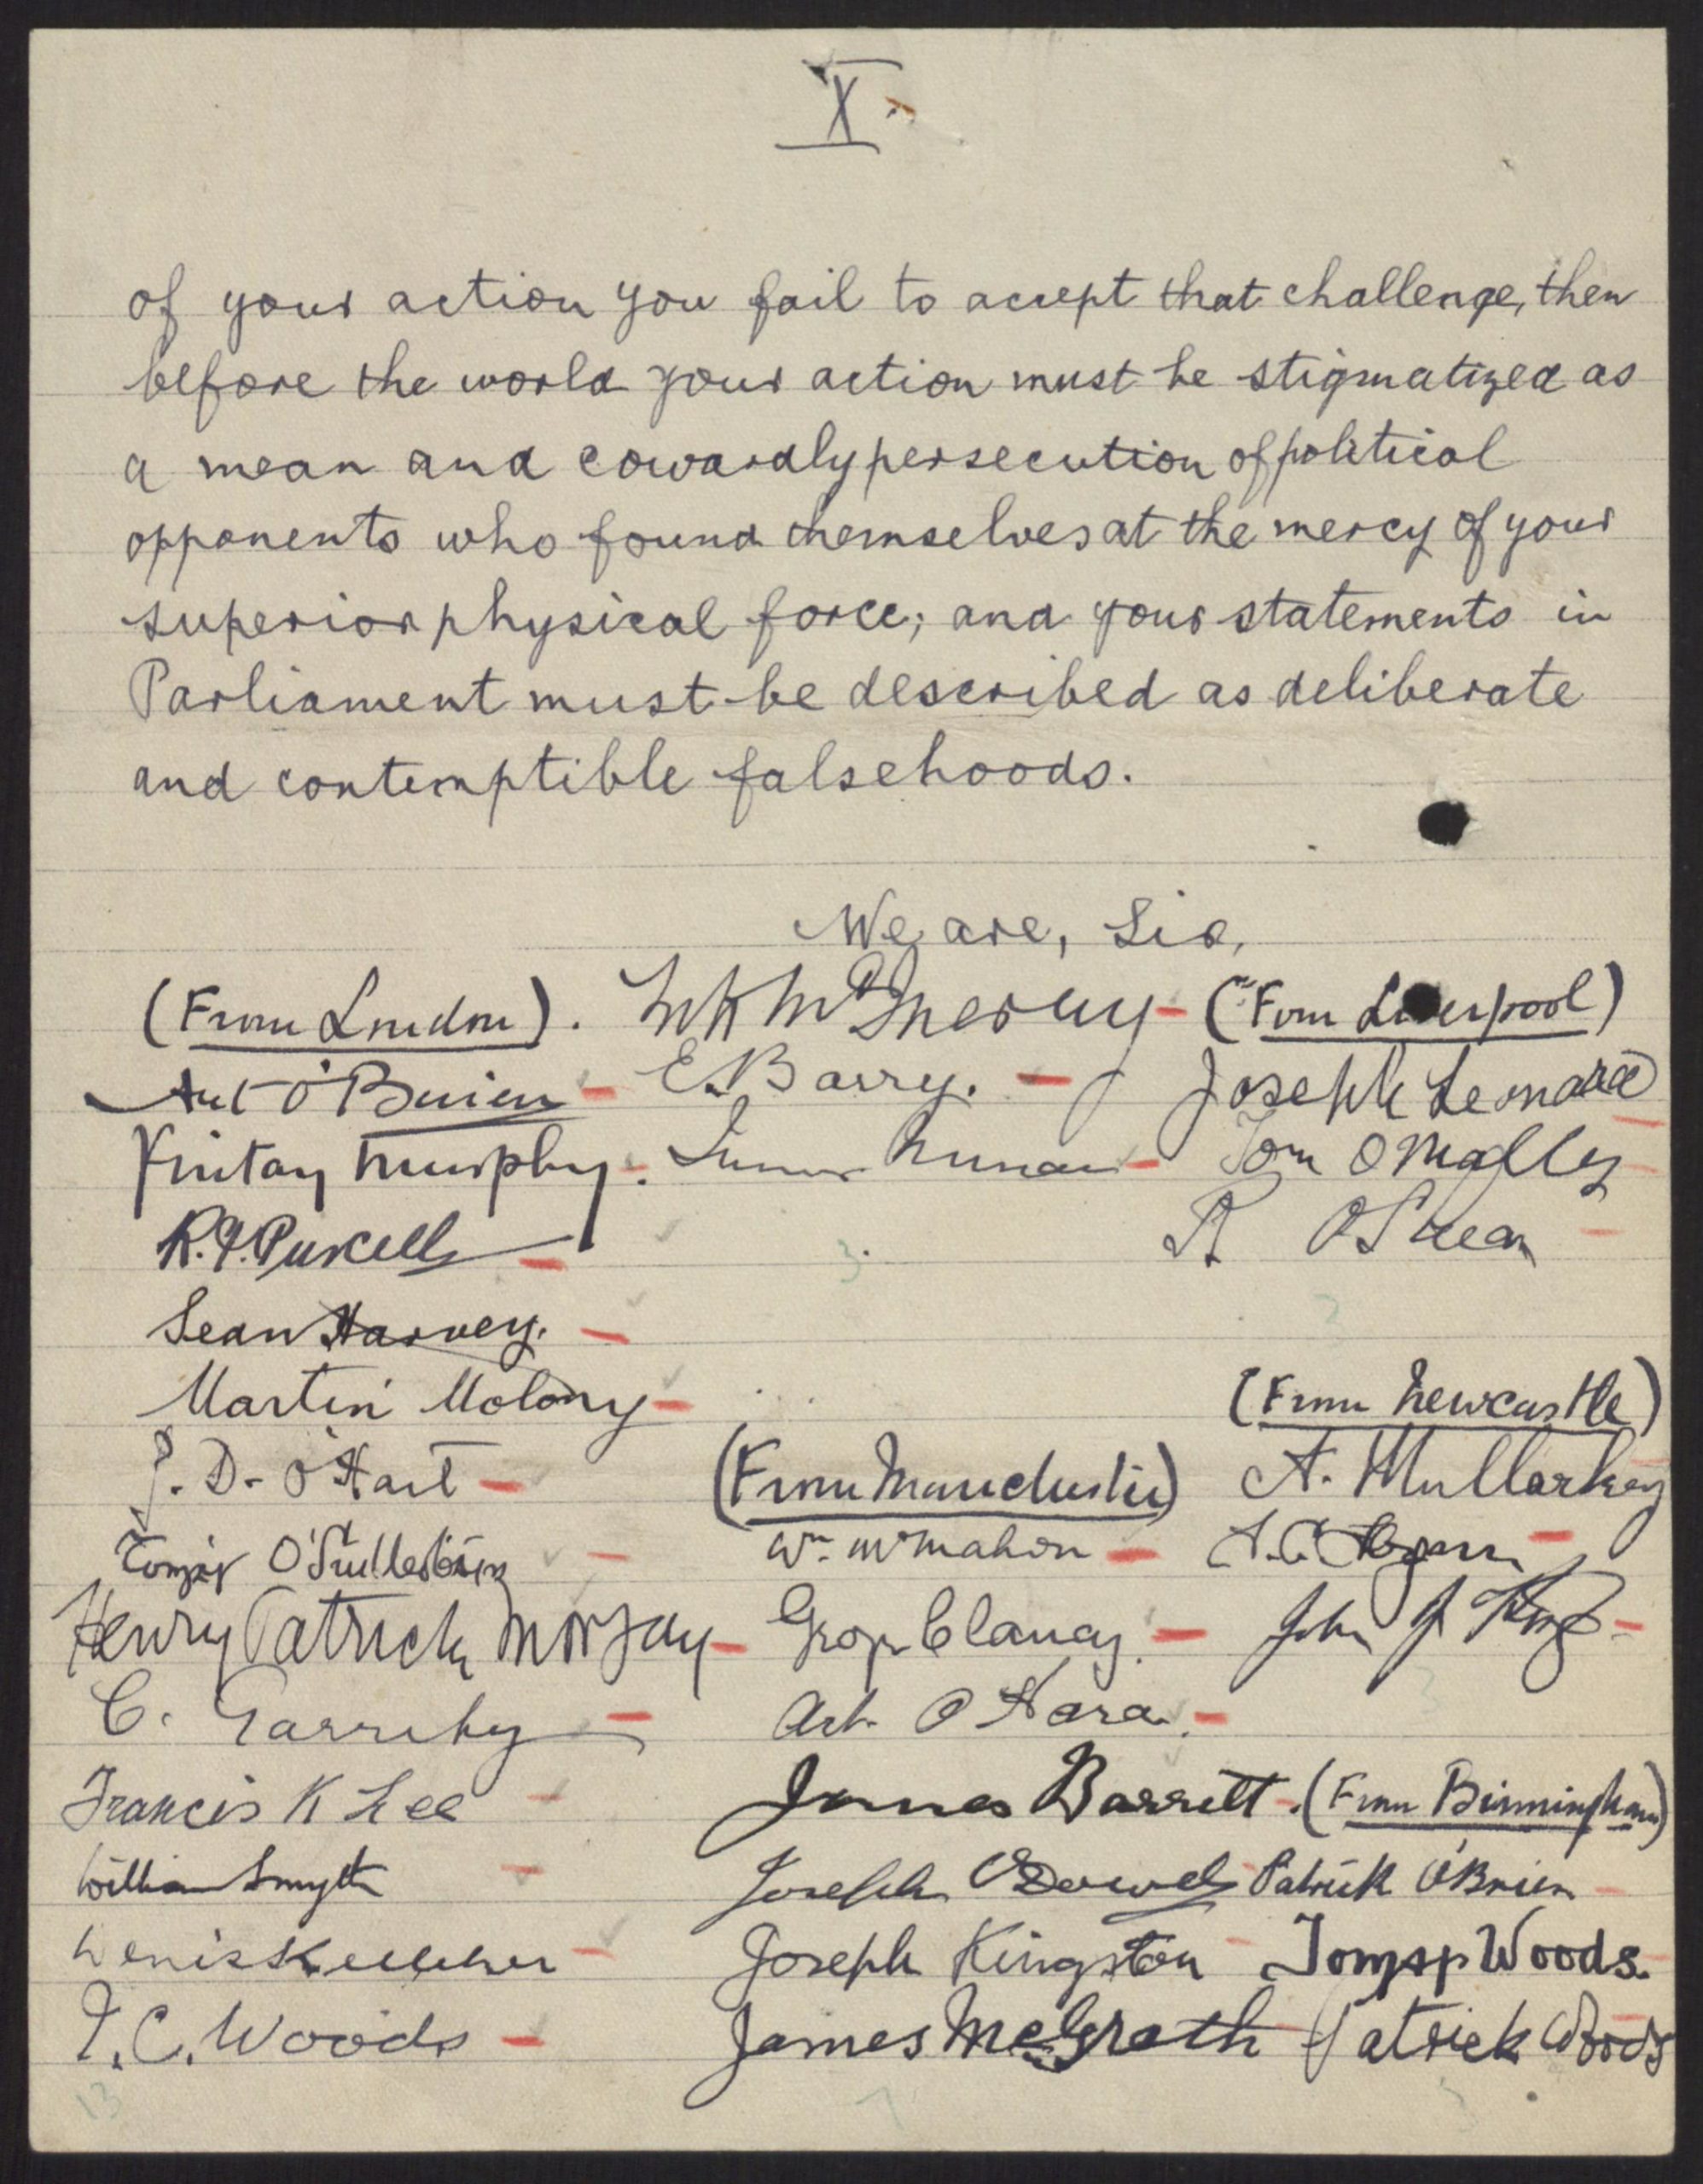 X
of your action you fail to accept that challenge, then
before the world your action must be stigmatized as
a mean and cowardly persecution of political
opponents who found themselves at the mercy of your
superior physical force; and your statements in
Parliament must be described as deliberate
and contemptible falsehoods.
We are, Sir,
(From London).
Art O'Brien
Fintan Murphy.
R. J. Purcell
Sean Harvey.
Martin Molony
J. D. O'Hart
Henry Patrick Morgan
C. Garrihy
Francis K Lee
William Smyth
Denis Kelleher
T. C. Woods
13
McInerny
E. Barry.
Nunan
3.
(From Manchester)
Wm. McMahon
Clancy.
Art. O'Hara.
James Barrett.
Joseph O'Dowd
Joseph Kingston
James McGrath
7
(From Liverpool)
Joseph Leonard
Tom O Malley
O Shea
(From Newcastle)
A. Mullarkey
John J
3
(From Birmingham)
Patrick O'Brien
Woods.
Patrick Woods